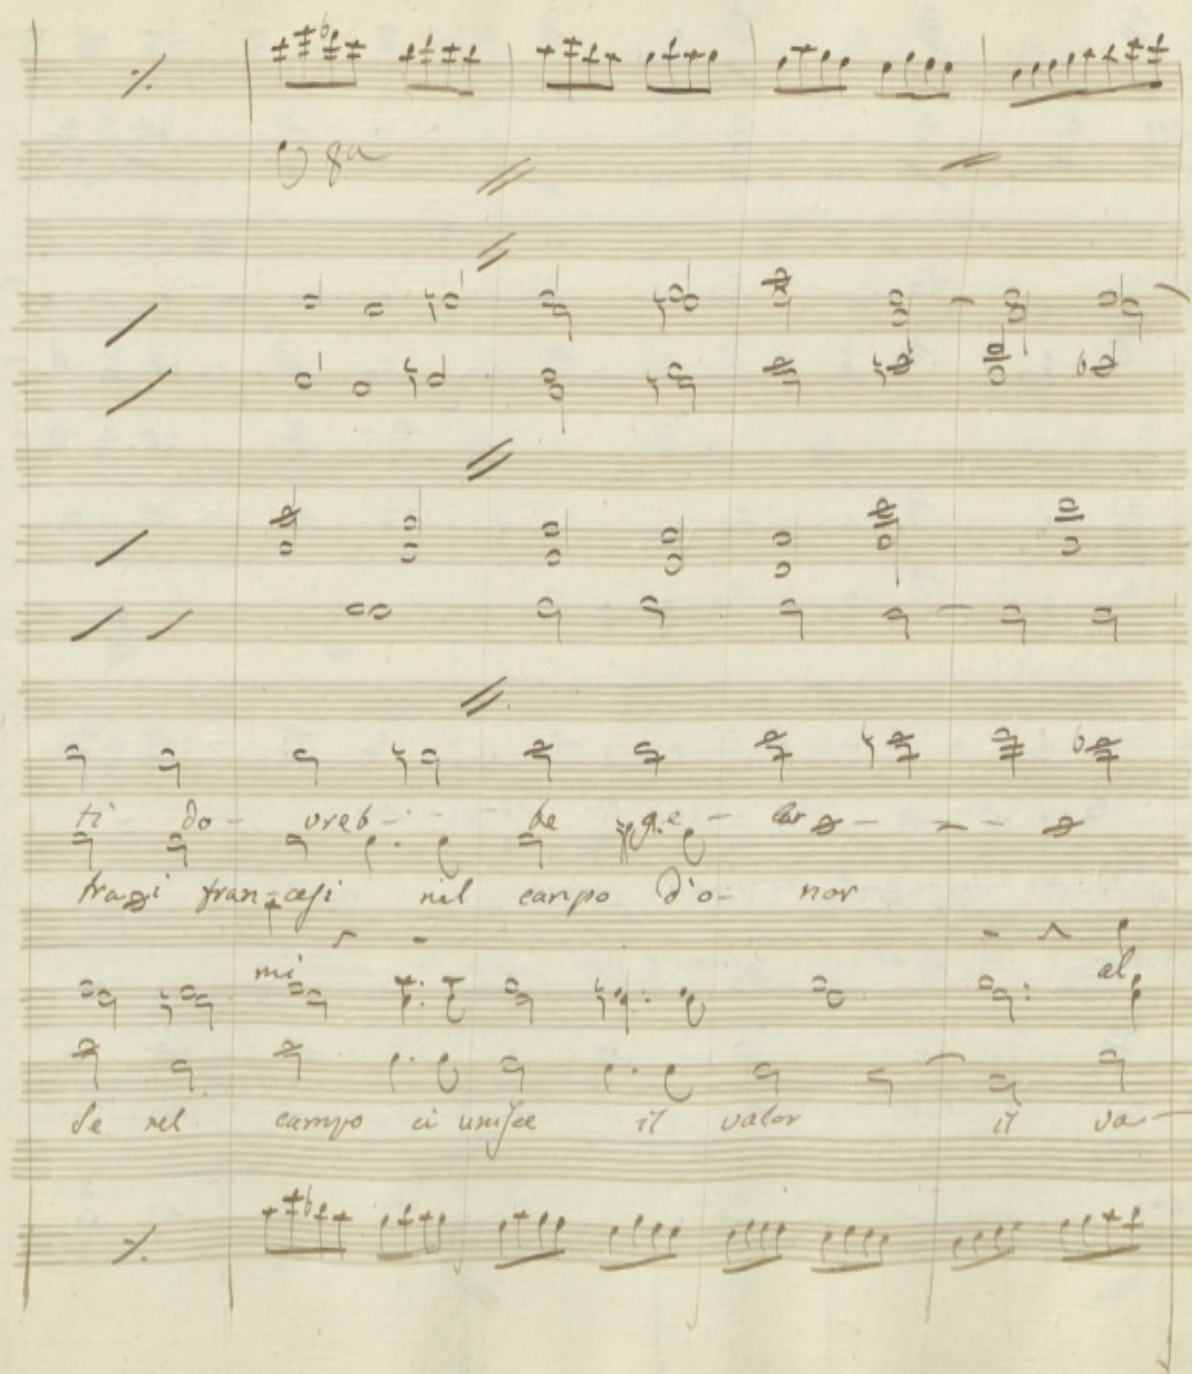 8a
ti do- vreb- - - be ge- lar - - -
trazi francesi nel campo d'o- nor
mi al
de nel campo ci unisce il valor il va-